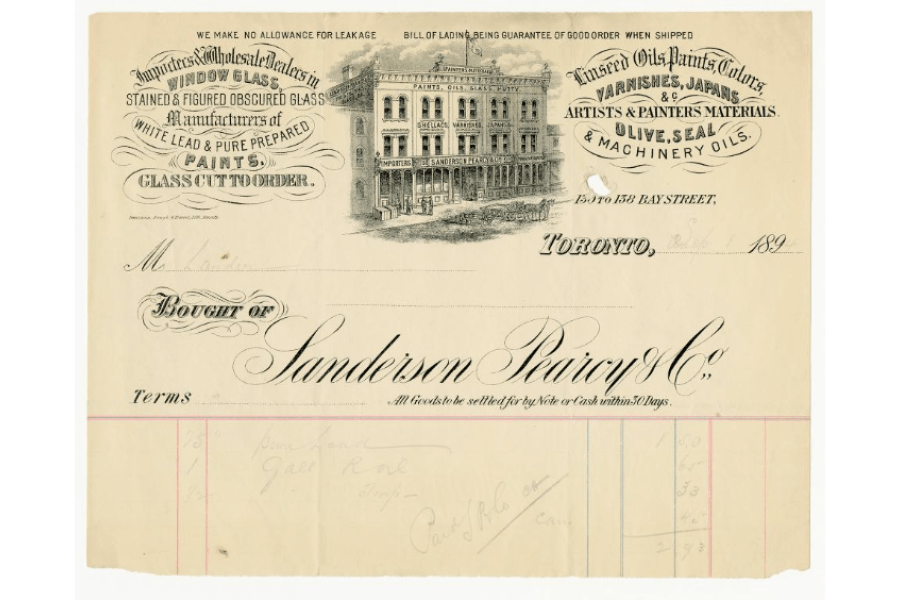 WE MAKE NO ALLOWANCE FOR LEAKAGE BILL OF LADING BEING GUARANTEE OF GOOD ORDER WHEN SHIPPED
Importers & Wholesale Dealers in
WINDOW GLASS,
STAINED & FIGURED OBSCURED GLASS
Manufacturers of
WHITE LEAD & PURE PREPARED
PAINTS.
GLASS CUT TO ORDER.
PAINTS, OILS, GLASS, PUTTY
SHELLAC VARNISHES JAPANS
IMPORTERS SANDERSON PEARCY & CO
Linseed Oils, Paints, Colors,
VARNISHES, JAPANS
&c
ARTISTS & PAINTERS MATERIALS.
OLIVE, SEAL
& MACHINERY OILS.
TO 138 BAY STREET,
TORONTO, Sep 1 189
M
BOUGHT OF
Sanderson Pearcy & Co.,
Terms All Goods to be settled for by Note or Cash within 30 Days.
25 1 50
1 Gall R Oil 60
1/2 33
Paid Can 45
2 93